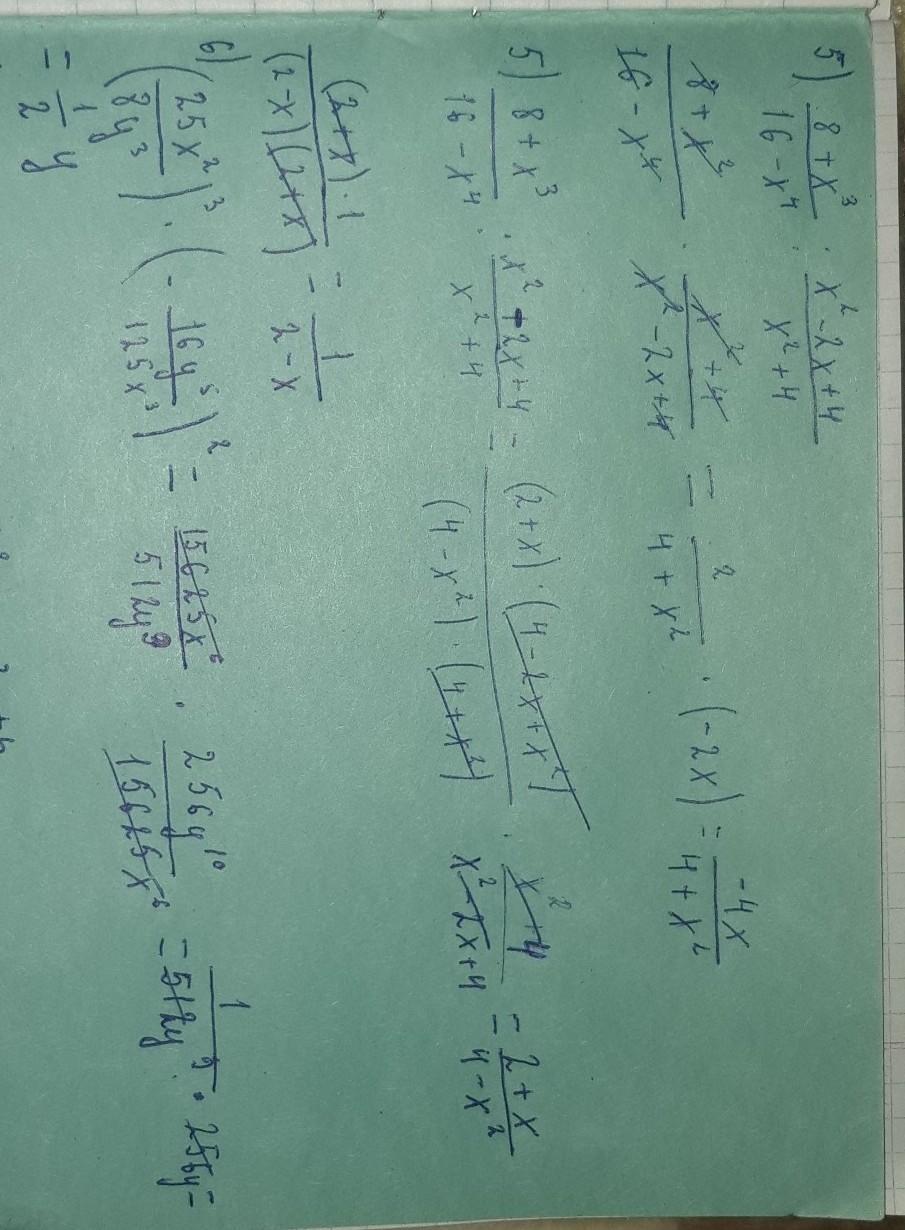 5) (8 + x³)/(16 - x⁴) : (x² - 2x + 4)/(x² + 4)
(8 + x³)/(16 - x⁴) · (x² + 4)/(x² - 2x + 4) = 2/(4 + x²) · (-2x) = -4x/(4 + x²)
5) (8 + x³)/(16 - x⁴) : (x² - 2x + 4)/(x² + 4) = ((2 + x) · (4 - 2x + x²))/((4 - x²) · (4 + x²)) · (x² + 4)/(x² - 2x + 4) = (2 + x)/(4 - x²)
((2 + x) · 1)/((2 - x)(2 + x)) = 1/(2 - x)
6) (25x²/8y³)³ · (- 16y⁵/125x³)² = 15625x⁶/512y⁹ · 256y¹⁰/15625x⁶ = 1/512y⁹ · 256y =
= 1/2 y